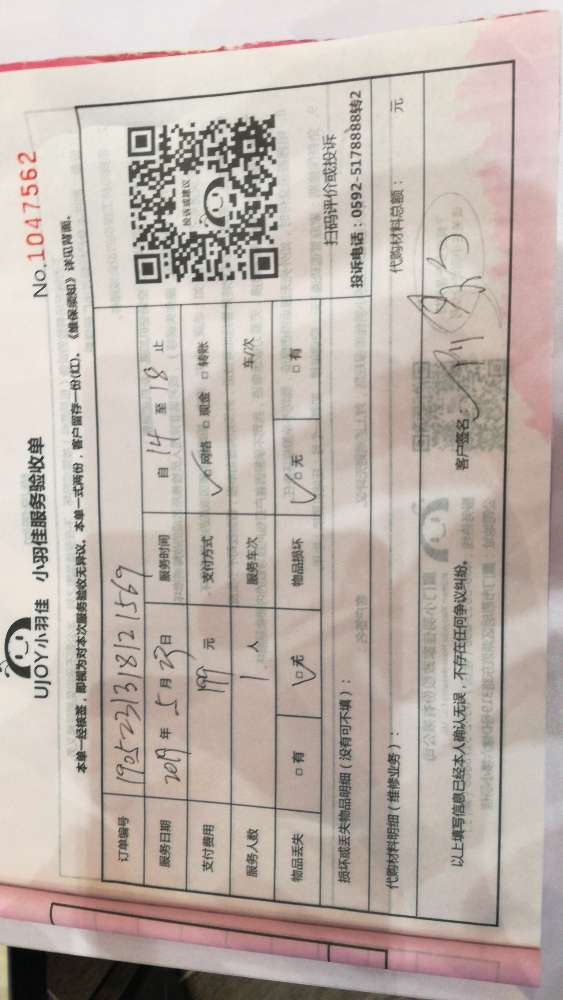 UJOY小羽佳 小羽佳服务验收单
No.1047562
本单一经接签，即视为对本次服务验收无异议。本单一式两份，客户留存一份(红)。《维保须知》详见背面。
订单编号 190523131821569
服务日期 2019年5月23日 服务时间 自14至18止
支付费用 199元 支付方式 ☑网络 □现金 □转账
服务人数 1人 服务车次 车/次
物品丢失 □有 ☑无 物品损坏 ☑无 □有
投诉或建议
扫码评价或投诉
投诉电话：0592-5178888转2
损坏或丢失物品明细（没有可不填）：
代购材料明细（维修业务）： 代购材料总额： 元
以上填写信息已经本人确认无误，不存在任何争议纠纷。 客户签名：